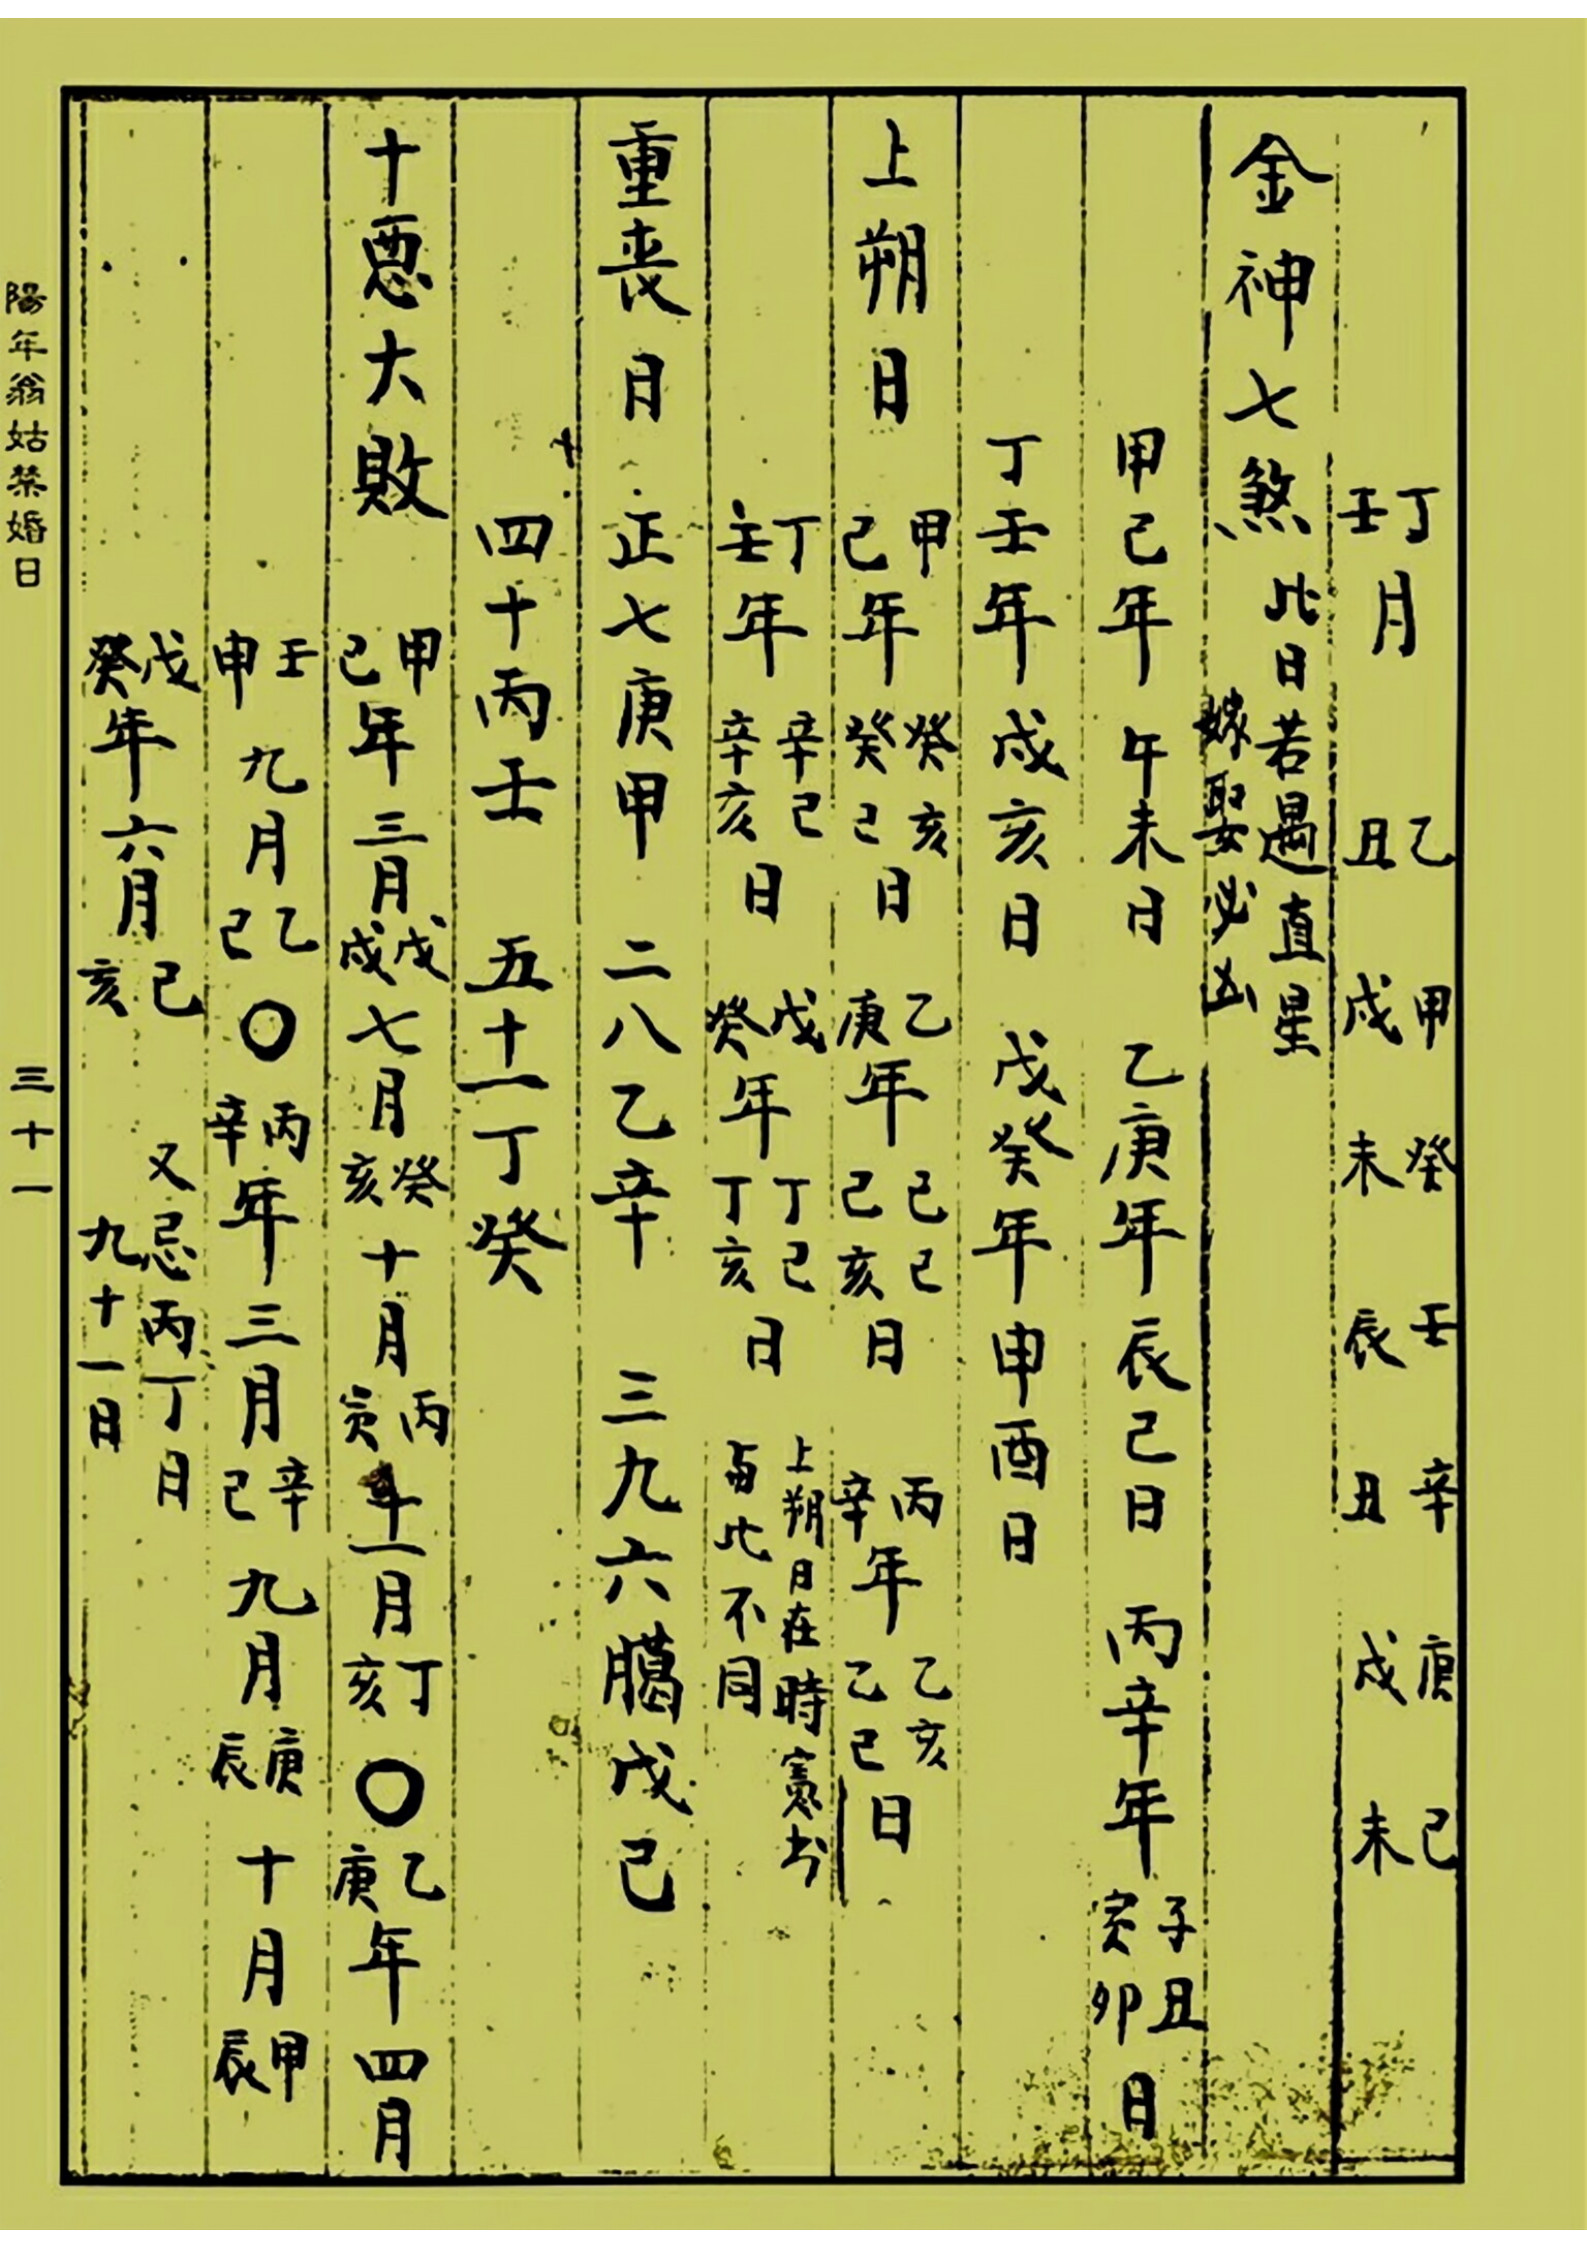 丁壬月 乙丑 甲戌 癸未 壬辰 辛丑 庚戌 己未
金神七煞 此日若遇直星嫁娶必凶
甲己年午未日 乙庚年辰巳日 丙辛年子丑寅卯日
丁壬年戌亥日 戊癸年申酉日
上朔日 甲己年癸亥癸巳日 乙庚年己巳己亥日 丙辛年乙亥乙巳日
丁壬年辛巳辛亥日 戊癸年丁巳丁亥日 上朔日在時憲书与此不同
重丧日 正七庚甲 二八乙辛 三九六臈戊己
四十丙壬 五十一丁癸
十惡大敗 甲己年三月戊戌七月癸亥十月丙寅十一月丁亥〇乙庚年四月
壬申九月乙巳〇丙辛年三月辛巳九月庚辰十月甲辰
戊癸年六月己亥 又忌丙丁月九十一日
陽年翁姑禁婚日
三十一